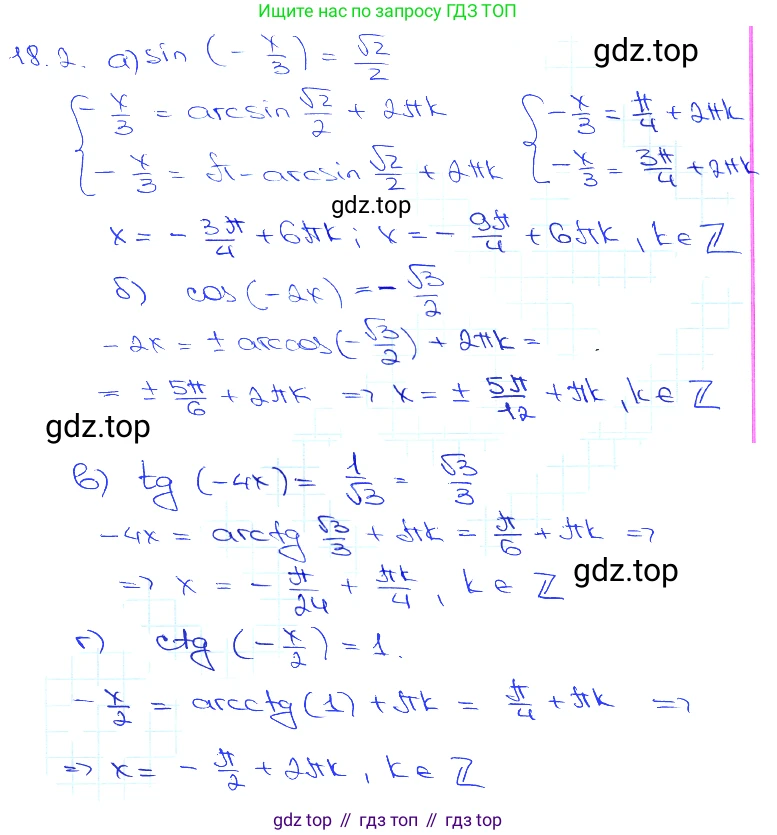 Ищите нас по запросу ГДЗ ТОП
18.2. а) sin (-x/3) = √2/2
gdz.top
{ -x/3 = arcsin √2/2 + 2πk { -x/3 = π/4 + 2πk
-x/3 = π - arcsin √2/2 + 2πk -x/3 = 3π/4 + 2πk
gdz.top
x = - 3π/4 + 6πk; x = - 9π/4 + 6πk, k ∈ ℤ
б) cos (-2x) = - √3/2
-2x = ± arccos(-√3/2) + 2πk =
= ± 5π/6 + 2πk => x = ± 5π/12 + πk, k ∈ ℤ
gdz.top
в) tg (-4x) = 1/√3 = √3/3
-4x = arctg √3/3 + πk = π/6 + πk =>
=> x = - π/24 + πk/4, k ∈ ℤ
gdz.top
г) ctg (-x/2) = 1.
-x/2 = arcctg(1) + πk = π/4 + πk =>
=> x = - π/2 + 2πk, k ∈ ℤ
gdz top // гдз топ // gdz top